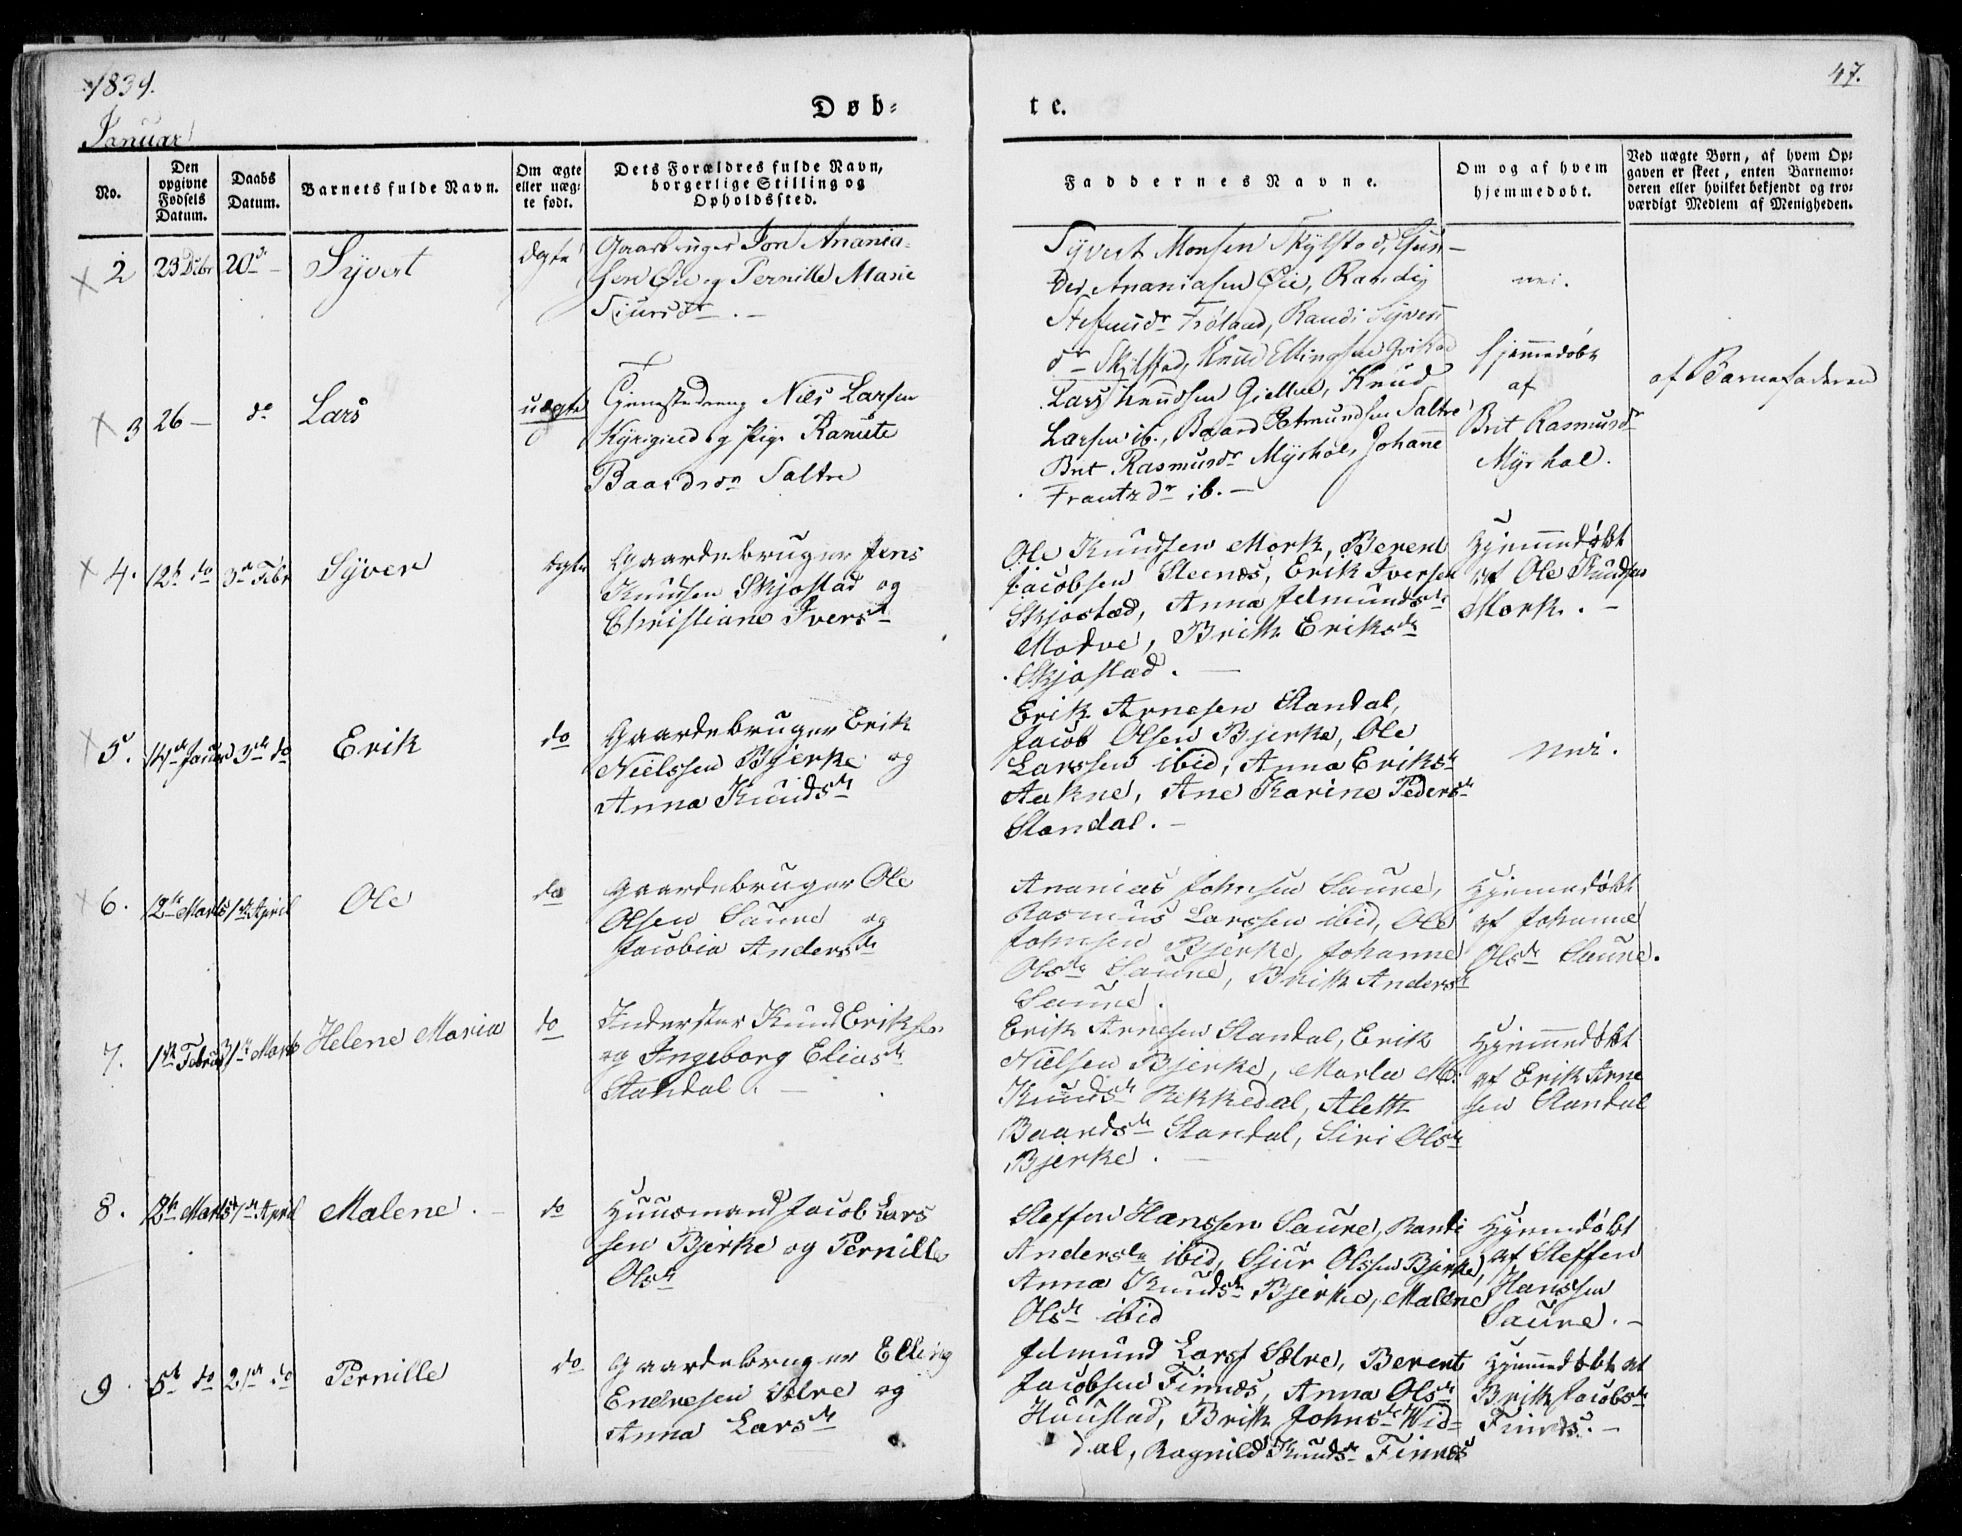 1839.
47.
Januar
Døb-
te.
No.
Den opgivne Fødsels Datum.
Daabs Datum.
Barnets fulde Navn.
Om ægte eller uægte født.
Dets Forældres fulde Navn, borgerlige Stilling og Opholdssted.
Faddernes Navne.
Om og af hvem hjemmedøbt.
Ved uægte Børn, af hvem Opgaven er skeet, enten Barnemoderen eller hvilket bekjendt og troværdigt Medlem af Menigheden.
2
23 Dcbr
20de
Syvert
ægte
Gaardbruger Jon Anania-
sen Øie og Pernille Marie
Siursdr. -
Syvert Monsen Skylstad,
Ananiasen Øie, Randi
Steffensdr Frøland, Randi Syverts
dr Skylstad, Knud Ellingsen
nei.
3
26 -
do
Lars
uægte
Tjenestedreng Nils Larsen
og Pige Ranute
Baardsdr Sætre
Lars Knudsen Knud
Larsen ib., Baard Sætre
Brit Rasmusdr Myrhol, Johanne
Frantzdr ib. -
hjemmedøbt
af
Brit Rasmusdr
Myrhol.
af Barnefaderen
4.
12te do
3de Febr
Syver
ægte
Gaardebruger Jens
Knudsen Skjøstad og
Christiane Iversdr
Ole Knudsen Mork, Berent
Jacobsen Steenes, Erik Iversen
Skjøstad, Anna Jetmundsdr
Modve, Brith Eriksdr
Skjøstad.
Hjemmedøbt
af Ole Knudsen
Mork. -
5.
14de Januar
3de do
Erik
do
Gaardebruger Erik
Nielssen Bjerke og
Anna Knudsdr
Erik Arnesen Standal,
Jacob Olsen Bjerke, Ole
Larssen ibid, Anna Eriksdr
Aakne, Ane Karine Pedersdr
Standal. -
nei.
6.
12te Marts
1ste April
Ole
do
Gaardebruger Ole
Olsen Saure og
Jacobia Andersdr
Ananias Johnsen Saure,
Rasmus Larssen ibid, Ole
Johnsen Bjerke, Johanne
Olsdr Saure, Brith Andersdr
Saure.
Hjemmedøbt
af Johanne
Olsdr Saure.
7.
1ste Februar
31te Marts
Helene Maria
do
Inderster Knud Eriksen
og Ingeborg Eliasdr
Standal. -
Erik Arnesen Standal, Erik
Nielsen Bjerke, Marta M.
Knudsdr Rekkedal, Aleth
Baardsdr Standal, Siri Olsdr
Bjerke.
Hjemmedøbt
af Erik Arne
sen Standal
8.
12te Marts
1ste April
Malene. -
do
Huusmand Jacob Lars
sen Bjerke og Pernille
Olsdr
Steffen Hanssen Saure, Randi
Andersdr ibid, Sjur Olssen Bjerke,
Anna Knudsdr Bjerke, Malene
Olsdr ibid
Hjemmedøbt
af Steffen
Hanssen
Saure. -
9
5te do
21de do
Pernille
do
Gaardebruger Elling
Endresen Sætre og
Anna Larsdr
Jetmund Larss Sætre, Berent
Jacobsen Finnes, Anna Olsdr
Huustad, Brith Johnsdr Vid-
dal, Ragnild Knudsdr Finnes
Hjemmedøbt af
Brith Jacobsdr
Finnes. -